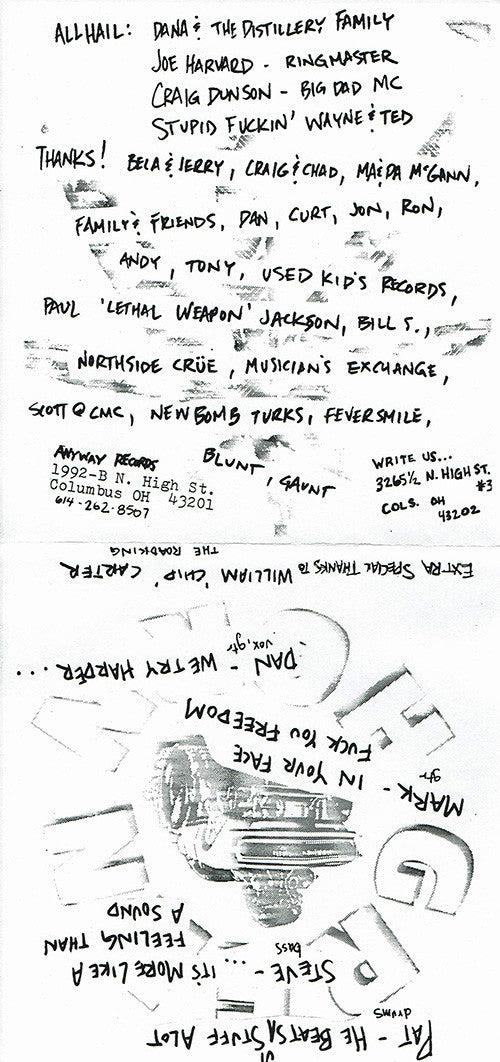 ALL HAIL: DANA & THE DISTILLERY FAMILY
JOE HARVARD - RINGMASTER
CRAIG DUNSON - BIG DAD MC
STUPID FUCKIN' WAYNE & TED
THANKS! BELA & JERRY, CRAIG & CHAD, MA & DA McGANN,
FAMILY & FRIENDS, DAN, CURT, JON, RON,
ANDY, TONY, USED KID'S RECORDS,
PAUL 'LETHAL WEAPON' JACKSON, BILL S.,
NORTHSIDE CRÜE, MUSICIAN'S EXCHANGE,
SCOTT @ CMC, NEW BOMB TURKS, FEVERSMILE,
BLUNT, GAUNT
ANYWAY RECORDS
1992-B N. High St.
Columbus OH 43201
614-262-8507
WRITE US...
3265½ N. HIGH ST.
#3
COLS. OH
43202
PAT - HE BEATS STUFF ALOT
drums
STEVE - ... IT'S MORE LIKE A
bass
FEELING THAN
A SOUND
MARK -
gtr
IN YOUR FACE
FUCK YOU FREEDOM
DAN - WE TRY HARDER...
vox, gtr
EXTRA SPECIAL THANKS TO WILLIAM 'CHIP' CARTER
THE ROADKING